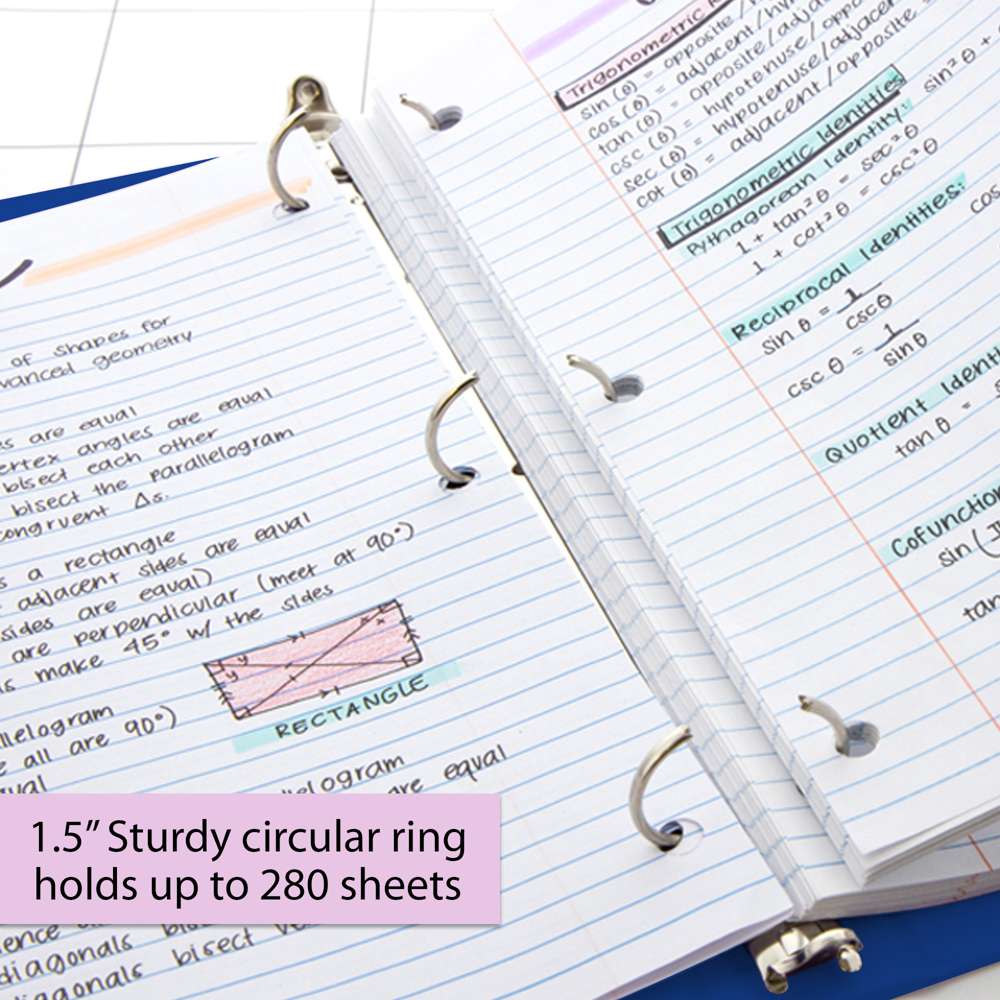 of shapes for
advanced geometry
are equal
vertex angles are equal
bisect each other
bisect the parallelogram
congruent Δs.
s a rectangle
adjacent sides are equal
sides are equal)
are perpendicular (meet at 90°)
make 45° w/ the sides
RECTANGLE
parallelogram
all are 90°)
are equal
1.5” Sturdy circular ring
holds up to 280 sheets
diagonals
diagonals bisect
Trigonometric
sin (θ) = opposite/
cos (θ) = adjacent/hyp
tan (θ) = opposite/adjacent
csc (θ) = hypotenuse/oppo
sec (θ) = hypotenuse/adjacen
cot (θ) = adjacent/opposite
Trigonometric Identities
Pythagorean Identity:
sin²θ +
1 + tan²θ = sec²θ
1 + cot²θ = csc²θ
Reciprocal Identities:
sin θ = 1/cscθ
csc θ = 1/sinθ
cos
Quotient Identi
tan θ =
Cofunction
sin(
tan